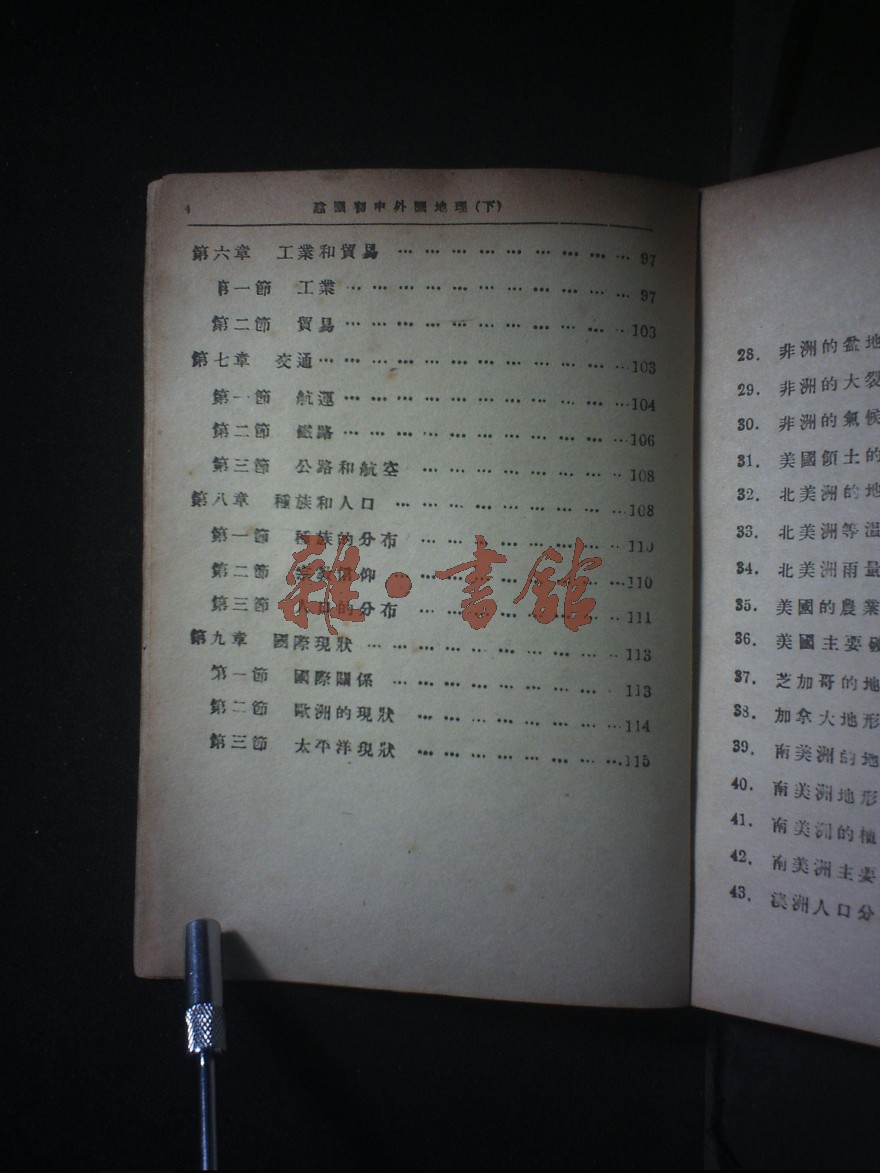 4 建國初中外國地理(下)
第六章 工業和貿易 … … … … … … … … … 97
第一節 工業 … … … … … … … … … … … 97
第二節 貿易 … … … … … … … … … … …103
第七章 交通 … … … … … … … … … … … …103
第一節 航運 … … … … … … … … … … …104
第二節 鐵路 … … … … … … … … … … …106
第三節 公路和航空 … … … … … … … …108
第八章 種族和人口 … … … … … … … … …108
第一節 種族的分布 … … … … … … … …110
第二節 宗教信仰 … … … … … … … … …110
第三節 人口的分布 … … … … … … … …111
第九章 國際現狀 … … … … … … … … … …113
第一節 國際關係 … … … … … … … … …113
第二節 歐洲的現狀 … … … … … … … …114
第三節 太平洋現狀 … … … … … … … …115
雜·書館
28. 非洲的盆地
29. 非洲的大裂
30. 非洲的氣候
31. 美國領土的
32. 北美洲的地
33. 北美洲等溫
34. 北美洲雨量
35. 美國的農業
36. 美國主要礦
37. 芝加哥的地
38. 加拿大地形
39. 南美洲的地
40. 南美洲地形
41. 南美洲的植
42. 南美洲主要
43. 澳洲人口分